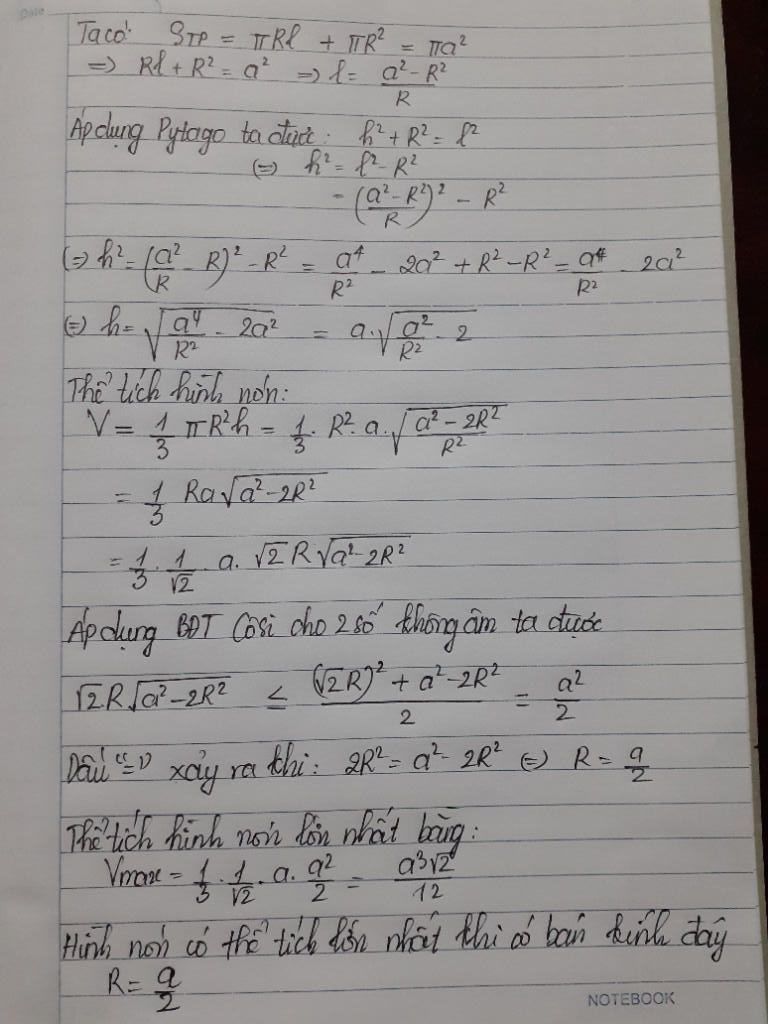 Ta có: STP = πRl + πR² = πa²
=> Rl + R² = a² => l = (a² - R²)/R
Áp dụng Pytago ta được: h² + R² = l²
(=) h² = l² - R²
= ((a² - R²)/R)² - R²
(=) h² = (a²/R - R)² - R² = a⁴/R² - 2a² + R² - R² = a⁴/R² - 2a²
(=) h = √(a⁴/R² - 2a²) = a.√(a²/R² - 2)
Thể tích hình nón:
V = 1/3 πR²h = 1/3 . R² . a . √((a² - 2R²)/R²)
= 1/3 Ra√(a² - 2R²)
= 1/3 . 1/√2 . a . √2 R√(a² - 2R²)
Áp dụng BĐT Côsi cho 2 số không âm ta được
√2 R√(a² - 2R²) ≤ ((√2R)² + a² - 2R²)/2 = a²/2
Dấu "=" xảy ra khi: 2R² = a² - 2R² (=) R = a/2
Thể tích hình nón lớn nhất bằng:
Vmax = 1/3 . 1/√2 . a . a²/2 = a³√2/12
Hình nón có thể tích lớn nhất khi có bán kính đáy
R = a/2
NOTEBOOK